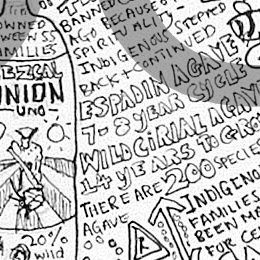 OWNED
BETWEEN 55
FAMILIES
MEZCAL
UNION
UNO
20%
wild
BANNED
AGO BECAUSE OF
SPIRITUALITY STEPPED
INDIGENOUS
BACK + CONTINUED
ESPADIN AGAVE
7-8 YEAR CYCLE
WILD CIRIAL AGAVE
14 YEARS TO GROW
THERE ARE 200 SPECIES
AGAVE
INDIGENO
FAMILIES
BEEN MA
FOR CE